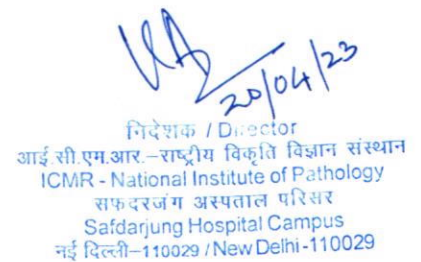 20/04/23
निदेशक / Director
आई.सी.एम.आर.–राष्ट्रीय विकृति विज्ञान संस्थान
ICMR - National Institute of Pathology
सफदरजंग अस्पताल परिसर
Safdarjung Hospital Campus
नई दिल्ली–110029 / New Delhi-110029